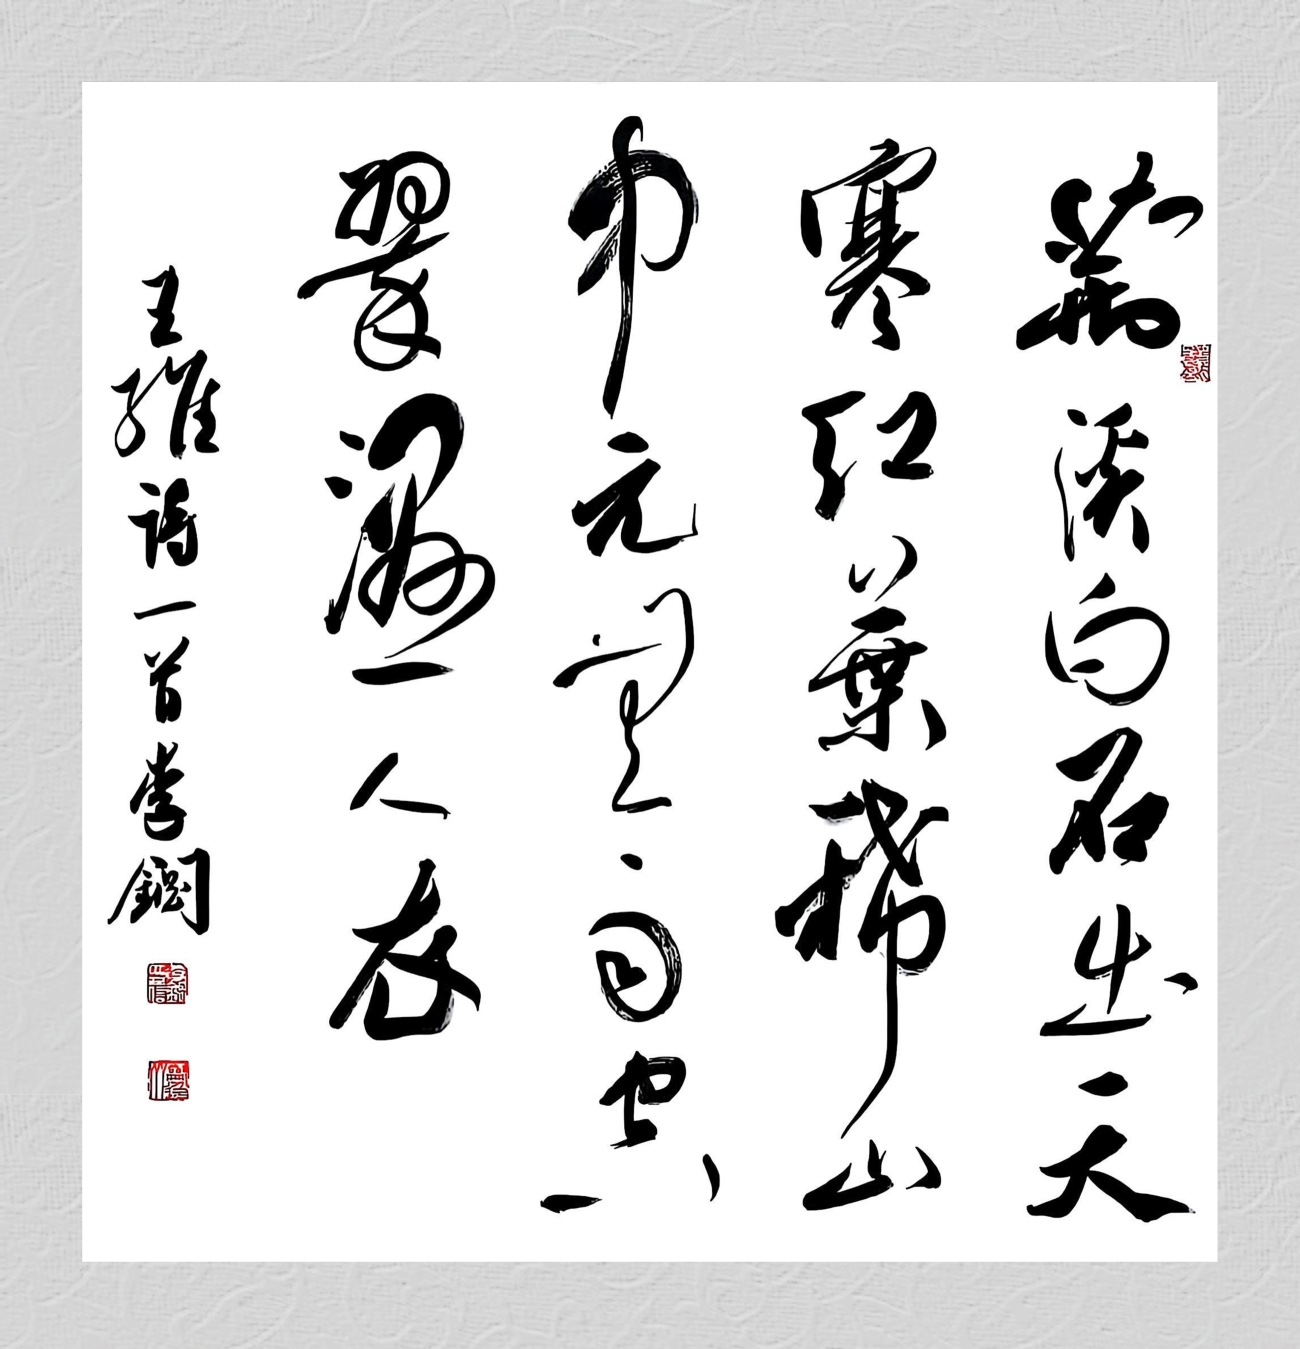 荊溪白石出天
寒紅葉稀山
元無雨空
翠濕人衣
王維詩一首李鋼